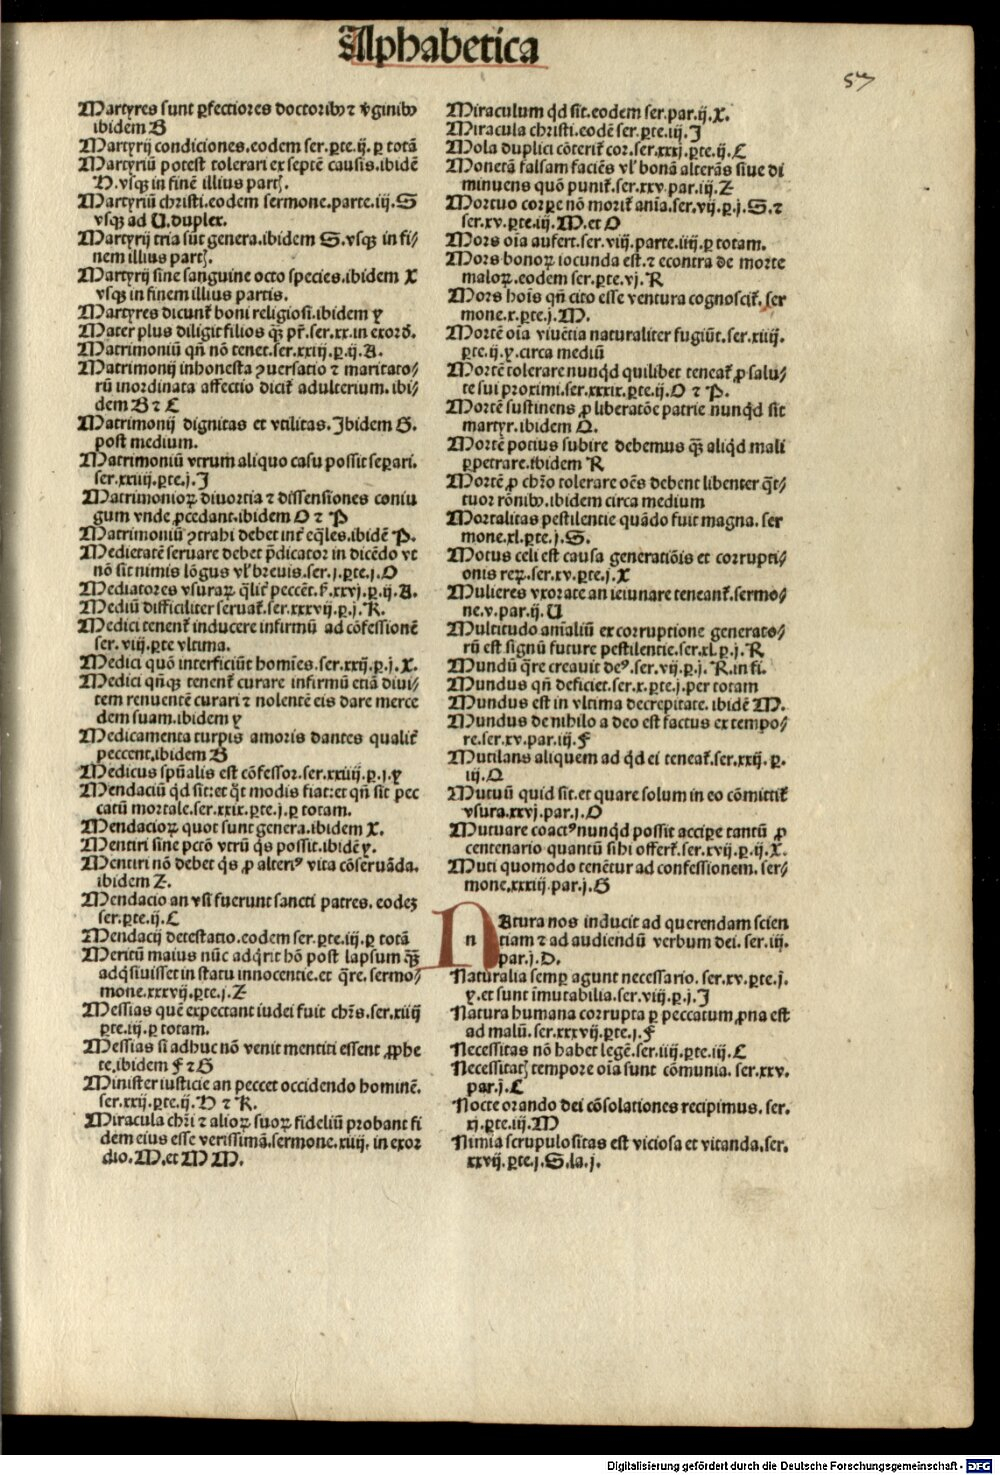 Alphabetica
57
Martyres sunt ꝑfectiores doctoribꝰ ⁊ v̓ginibꝰ
ibidem B
Martyrij condiciones.eodem ser.ꝑte.ij.ꝑ totā
Martyriū potest tolerari ex septē causis.ibidē
H.vsqꝫ in finē illius part̉.
Martyriū christi.eodem sermone.parte.iij.S
vsqꝫ ad U.duplex.
Martyrij tria sūt genera.ibidem S.vsqꝫ in fi/
nem illius part̉.
Martyrij sine sanguine octo species.ibidem X
vsqꝫ in finem illius partis.
Martyres dicunt̉ boni religiosi.ibidem y
Mater plus diligit filios qꝫ̄ pr̄.ser.xx.in exord̄.
Matrimoniū qn̄ nō tenet.ser.xxiij.ꝑ.ij.A.
Matrimonij inhonesta ꝯuersatio ⁊ maritato/
rū inordinata affectio dicit̉ adulterium.ibi/
dem B ⁊ C
Matrimonij dignitas et vtilitas.Ibidem G.
post medium.
Matrimoniū vtrum aliquo casu possit seꝑari.
ser.xxiiij.ꝑte.j.I
Matrimonioꝝ diuortia ⁊ dissensiones coniu
gum vnde ꝓcedant.ibidem O ⁊ P
Matrimoniū ꝯtrahi debet int̉ eq̄les.ibidē P.
Medietatē seruare debet p̄dicator in dicēdo vt
nō sit nimis lōgus vl̉ breuis.ser.j.ꝑte.j.O
Mediatores vsuraꝝ q̄lit̉ peccēt.ẜ.xxvj.ꝑ.ij.A.
Mediū difficiliter seruat̉.ser.xxxvij.ꝑ.j.R.
Medici tenent̉ inducere infirmū ad cōfessionē
ser.viij.ꝑte vltima.
Medici quō interficiūt homīes.ser.xxij.ꝑ.j.X.
Medici qn̄qꝫ tenent̉ curare infirmū etiā diui/
tem renuentē curari ⁊ nolentē eis dare merce
dem suam.ibidem y
Medicamenta turpis amoris dantes qualit̉
peccent.ibidem B
Medicus spūalis est cōfessor.ser.xxiiij.ꝑ.j.y
Mendaciū qd̓ sit:et qͦt modis fiat:et qn̄ sit pec
catū mortale.ser.xxix.ꝑte.j.ꝑ totam.
Mendacioꝝ quot sunt genera.ibidem X.
Mentiri sine pctō vtrū qͥs possit.ibidē y.
Mentiri nō debet qͥs ꝓ alteriꝰ vita cōseruāda.
ibidem Z.
Mendacio an vsi fuerunt sancti patres. eodeꝫ
ser.ꝑte.ij.C
Mendacij detestatio.eodem ser.ꝑte.iij.ꝑ totā
Meritū maius nūc adqͥrit hō post lapsum qꝫ̄
adqͥsiuisset in statu innocentie.et qͣre. sermo/
mone.xxxvij.ꝑte.j.Z
Messias quē expectant iudei fuit chr̄s.ser.xiiij
ꝑte.iij.ꝑ totam.
Messias si adhuc nō venit mentiti essent ꝓphe
te.ibidem F ⁊ G
Minister iusticie an peccet occidendo hominē.
ser.xxij.ꝑte.ij.H ⁊ K.
Miracula chr̄i ⁊ alioꝝ suoꝝ fideliū probant fi
dem eius esse verissimā.sermone.xiiij. in exor
dio.M.et M M.
Miraculum qd̓ sit.eodem ser.par.ij.X.
Miracula christi.eodē ser.ꝑte.iij.I
Mola duplici cōterit̉ cor.ser.xxxj.ꝑte.ij.C
Monetā falsam faciēs vl̉ bonā alterās siue di
minuens quō punit̉.ser.xxv.par.iij.Z
Mortuo corꝑe nō morit̉ anīa.ser.vij.ꝑ.j.S.⁊
ser.xv.ꝑte.iij.M.et O
Mors oīa aufert.ser.viij.parte.iiij.ꝑ totam.
Mors bonoꝝ iocunda est.⁊ econtra de morte
maloꝝ.eodem ser.ꝑte.vj.R
Mors hoīs qn̄ cito esse ventura cognoscit̉.ser
mone.x.ꝑte.j.M.
Mortē oīa viuētia naturaliter fugiūt.ser.xiiij.
ꝑte.ij.y.circa mediū
Mortē tolerare nunqͥd quilibet teneat̉ ꝓ salu/
te sui proximi.ser.xxxix.ꝑte.ij.O ⁊ P.
Mortē sustinens ꝓ liberatōe patrie nunqͥd sit
martyr.ibidem Q.
Mortē potius subire debemus qꝫ̄ aliqͥd mali
ꝑpetrare.ibidem R
Mortē ꝓ chr̄o tolerare oēs debent libenter qͣt/
tuor rōnibꝰ.ibidem circa medium
Mortalitas pestilentie quādo fuit magna. ser
mone.xl.ꝑte.j.S.
Motus celi est causa generatiōis et corrupti/
onis reꝝ.ser.xv.ꝑte.j.X
Mulieres vxorate an ieiunare teneant̉.sermo/
ne.v.par.ij.U
Multitudo anīaliū ex corruptione generato/
rū est signū future pestilentie.ser.xl.ꝑ.j.R
Mundū qͣre creauit deꝰ.ser.vij.ꝑ.j.R.in fi.
Mundus qn̄ deficiet.ser.x.ꝑte.j.per totam
Mundus est in vltima decrepitate. ibidē M.
Mundus de nihilo a deo est factus ex tempo/
re.ser.xv.par.iij.F
Mutilans aliquem ad qd̓ ei teneat̉.ser.xxij.ꝑ.
iij.Q
Mutuū quid sit.et quare solum in eo cōmittit̉
vsura.xxvj.par.j.O
Mutuare coactꝰ nunqͥd possit acciꝑe tantū ꝓ
centenario quantū sibi offert̉.ser.xvij.ꝑ.ij.X.
Muti quomodo tenētur ad confessionem. ser/
mone.xxxiij.par.j.G
NAtura nos inducit ad querendam scien
n tiam ⁊ ad audiendū verbum dei. ser.iij.
par.j.D.
Naturalia semꝑ agunt necessario. ser.xv.ꝑte.j.
y.et sunt īmutabilia.ser.viij.ꝑ.j.I
Natura humana corrupta ꝑ peccatum,ꝓna est
ad malū.ser.xxxvij.ꝑte.j.F
Necessitas nō habet legē.ser.iiij.ꝑte.iij.C
Necessitat̉ tempore oīa sunt cōmunia. ser.xxv.
par.j.C
Nocte orando dei cōsolationes recipimus. ser.
xj.ꝑte.iij.M
Nimia scrupulositas est viciosa et vitanda.ser.
xxvij.ꝑte.j.S.la.j.
Digitalisierung gefördert durch die Deutsche Forschungsgemeinschaft - DFG